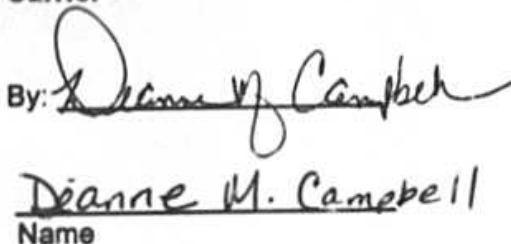 By: Dianne M Campbell
Dianne M. Campbell
Name